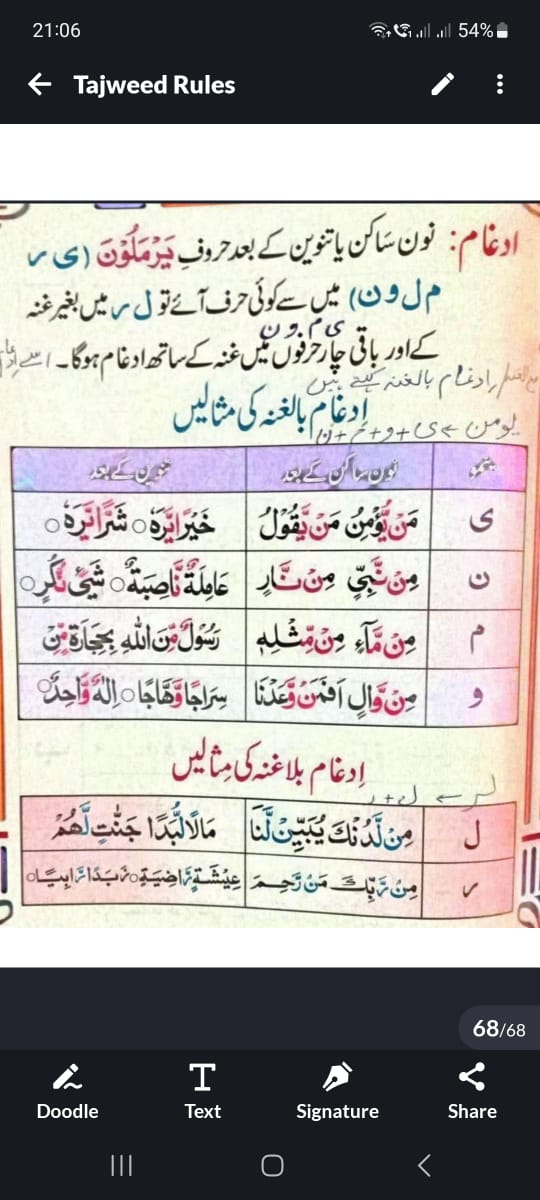 21:06
54%
Tajweed Rules
ادغام: نون ساکن یا تنوین کے بعد حروفِ یَرْمَلُوْنَ (ی ر
م ل و ن) میں سے کوئی حرف آئے تو ل ر میں بغیر غنہ
ی م و ن
کے اور باقی چار حرفوں میں غنہ کے ساتھ ادغام ہوگا۔ اسے
ادغام بالغنہ کہتے ہیں
ادغام بالغنہ کی مثالیں
یومن ← ی + و + م + ن
نون ساکن کے بعد تنوین کے بعد
ی مَنْ یُّؤْمِنُ مَنْ یَّقُوْلُ خَیْرًا یَّرَهٗ ○ شَرًّا یَّرَهٗ ○
ن مِنْ نَّبِیٍّ مِنْ نَّارٍ عَامِلَةٌ نَّاصِبَةٌ ○ شَیْءٍ نُّكُرٍ ○
م مِنْ مَّآءٍ مِنْ مِّثْلِهٖ رَسُوْلٌ مِّنَ اللهِ بِحِجَارَةٍ مِّنْ
و مِنْ وَّالٍ اَفَمَنْ وَّعَدْنَا سِرَاجًا وَّهَّاجًا ○ اِلٰهٌ وَّاحِدٌ ○
اِدغام بلاغنہ کی مِثالیں
لر ← ل + ر
ل مِنْ لَّدُنْكَ یُبَیِّنْ لَّنَا مَالًا لُّبَدًا جَنّٰتٍ لَّهُمْ
ر مِنْ رَّبِّكَ مَنْ رَّحِمَ عِیْشَةٍ رَّاضِیَةٍ ○ زَبَدًا رَّابِیًا ○
68/68
Doodle
Text
Signature
Share